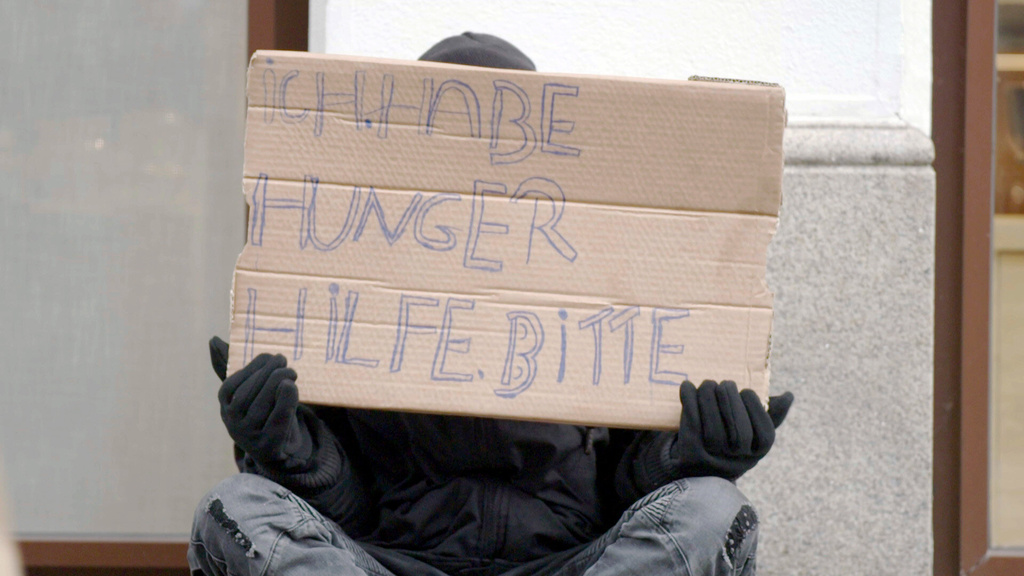 iCH.HABE
HUNGER
HiLFE.BiTTE